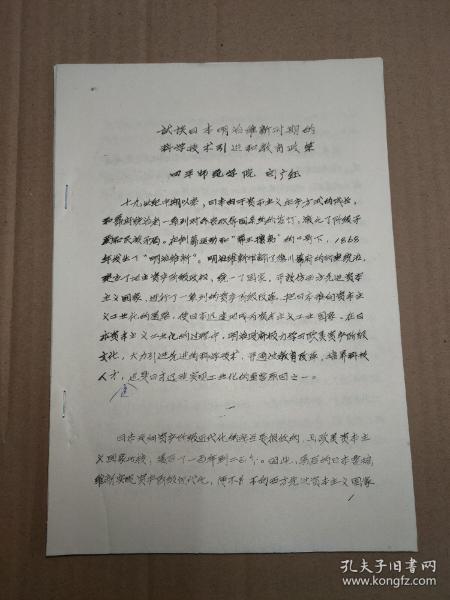 试谈日本明治维新时期的
科学技术引进和教育政策
四平师范学院 刘
十九世纪中期以来，日本由于资本主义生产方式的成长，
和幕府统治者一系列对外 条约的签订，激化了阶级矛
盾和民族矛盾。在倒幕运动和“尊王攘夷”的口号下，1868
年发生了“明治维新”。明治维新推翻了德川幕府的封建统治，
建立了地主资产阶级政权，统一了国家，并按仿西方先进资本
主义国家，进行了一系列的资产阶级改革，把日本推向资本主
义工业化的道路，使日本迅速地成为资本主义工业国家。在日
本资本主义工业化的过程中，明治政府极力学习欧美资产阶级
文化，大力引进先进的科学技术，并通过教育改革，培养科技
人才，这是日本迅速实现工业化的重要原因之一。
这
一
日本走向资产阶级近代化 是较晚的，与欧美资本主
义国家比较，落后了一百年到二百年。因此，落后的日本要
维新实现资产阶级近代化，便不 西方先进资本主义国家
1
孔夫子旧书网
www.kongfz.com